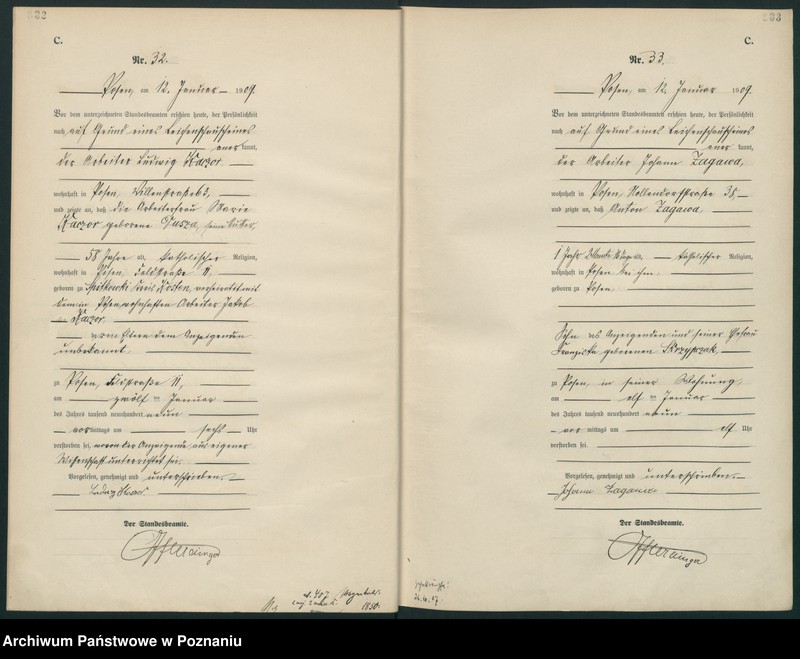 C.
Nr. 32.
Posen, am 12. Januar 1909.
Vor dem unterzeichneten Standesbeamten erschien heute, der Persönlichkeit
nach auf Grund eines Leichenschauscheines
anerkannt,
der Arbeiter Ludwig Kaczor
wohnhaft in Posen,
und zeigte an, daß die Arbeiterfrau Marie
Kaczor geborene Dusza, seine Mutter,
58 Jahre alt, katholischer Religion,
wohnhaft in Posen, Feldstraße 11,
geboren zu Kreis Kosten, verheiratet mit
dem in Posen wohnhaften Arbeiter Jakob
Kaczor
deren Eltern dem Anzeigenden
unbekannt,
zu Posen, Feldstraße 11,
am zwölften Januar
des Jahres tausend neunhundert neun
vormittags um sechs Uhr
verstorben sei, wovon der Anzeigende aus eigener
Wissenschaft unterrichtet sei.
Vorgelesen, genehmigt und unterschrieben.
Der Standesbeamte.
C.
Nr. 33.
Posen, am 12. Januar 1909.
Vor dem unterzeichneten Standesbeamten erschien heute, der Persönlichkeit
nach auf Grund eines Leichenschauscheines
anerkannt,
der Arbeiter Johann Zagawa,
wohnhaft in Posen, Hollendorfstraße 38,
und zeigte an, daß Anton Zagawa,
1 Jahr alt, katholischer Religion,
wohnhaft in Posen bei ihm
geboren zu Posen,
Sohn des Anzeigenden und seiner Ehefrau
Franziska geborenen Skrzypczak,
zu Posen, in seiner Wohnung
am elften Januar
des Jahres tausend neunhundert neun
vormittags um elf Uhr
verstorben sei.
Vorgelesen, genehmigt und unterschrieben.
Johann Zagawa
Der Standesbeamte.
Archiwum Państwowe w Poznaniu